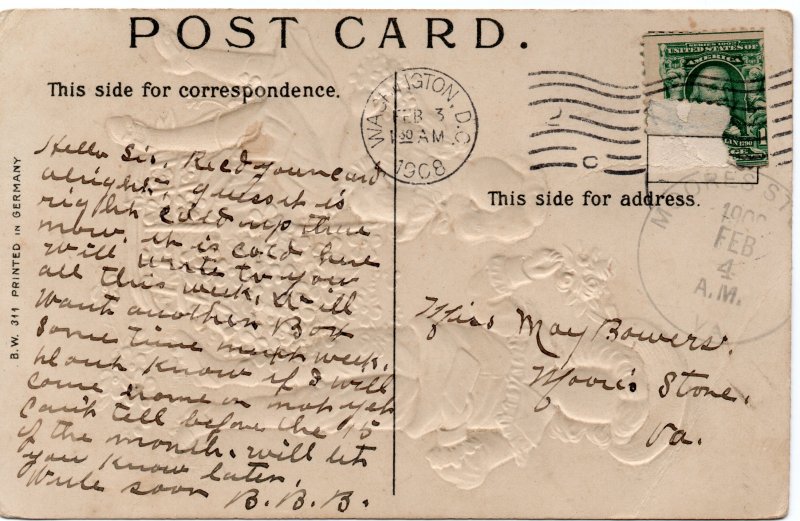 POST CARD.
This side for correspondence.
WASHINGTON, D.C.
FEB 3
1 30 AM
1908
SERIES 1902
UNITED STATES OF
AMERICA
This side for address.
FEB
4
A.M.
VA.
B.W. 311 PRINTED IN GERMANY
Hello Sis, Recd your card
alright, guess it is
right cold up there
now, it is cold here
will write to you
all this week, Will
want another Box
some time next week.
dont know if I will
come home or not yet
can't tell before the 15
of the month. will let
you know later,
Write soon
B. B. B.
Miss May Bowers.
Moore's Store,
Va.